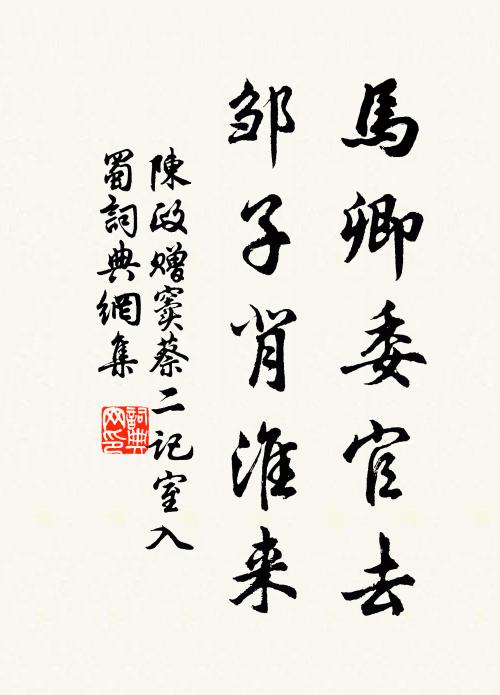 馬卿委官去
邹子背淮来
陳政赠窦蔡二记室入
蜀詞典網集
詞典网印